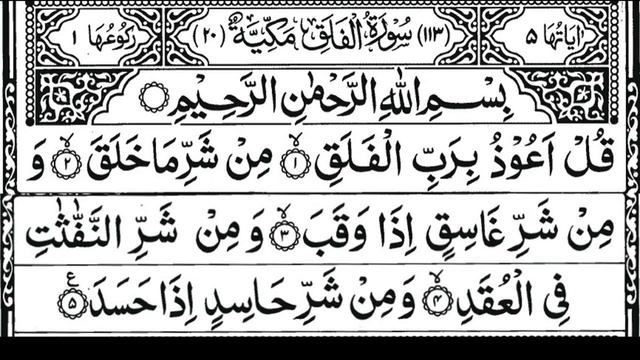 اٰیَاتُهَا ۵ (۱۱۳) سُوْرَةُ الْفَلَقِ مَكِّيَّةٌ (۲۰) رُكُوْعُهَا ۱
بِسْمِ اللهِ الرَّحْمٰنِ الرَّحِيْمِ
قُلْ اَعُوْذُ بِرَبِّ الْفَلَقِ ۙ﴿۱﴾ مِنْ شَرِّ مَا خَلَقَ ۙ﴿۲﴾ وَ
مِنْ شَرِّ غَاسِقٍ اِذَا وَقَبَ ۙ﴿۳﴾ وَ مِنْ شَرِّ النَّفّٰثٰتِ
فِی الْعُقَدِ ۙ﴿۴﴾ وَ مِنْ شَرِّ حَاسِدٍ اِذَا حَسَدَ ﴿۵﴾ ع